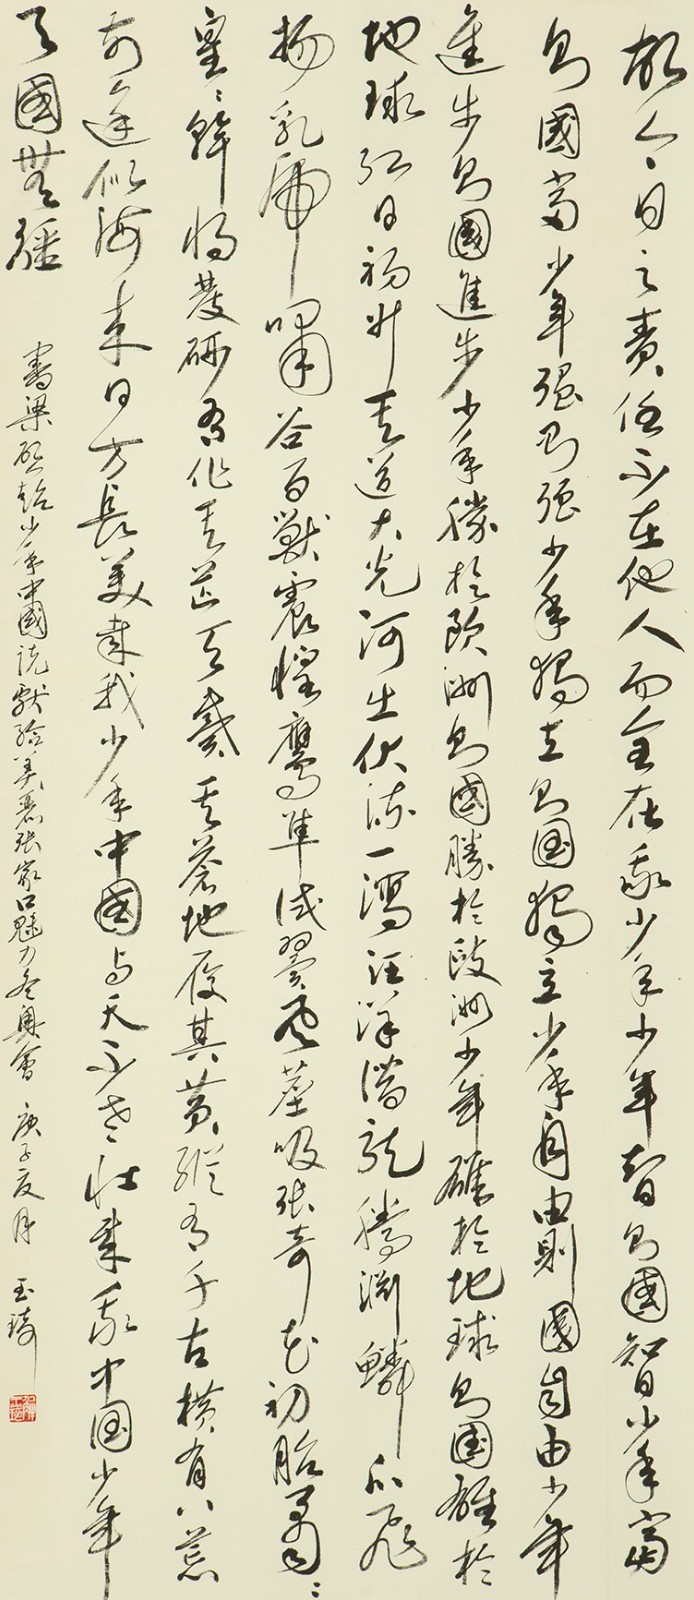 故今日之責任不在他人而全在我少年少年智則國智少年富
則國富少年强則强少年獨立則国獨立少年自由則國自由少年
進步則國進步少年勝於欧洲則國勝於歐洲少年雄於地球則国雄於
地球红日初升其道大光河出伏流一瀉汪洋潛龍騰渊鱗爪飛
揚乳虎嘯谷百獸震惶鷹隼试翼風塵吸张奇花初胎矞矞
皇皇幹將發硎有作其芒天戴其蒼地履其黄縱有千古横有八荒
前途似海来日方長美哉我少年中國与天不老壮哉我中国少年
与國無疆
書梁啟超少年中國说献给美麗张家口魅力冬奥會 庚子夏月 玉琦